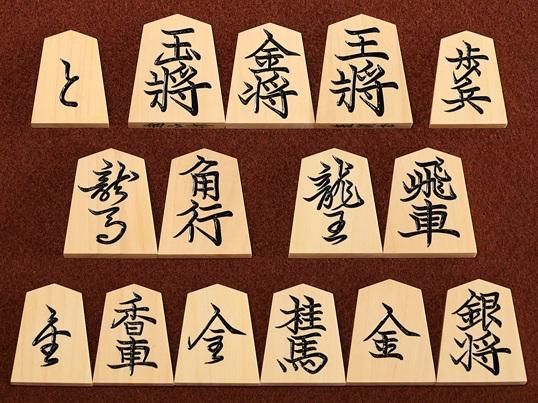 と 玉将 金将 王将 歩兵
龍馬 角行 龍王 飛車
全 香車 今 桂馬 金 銀将